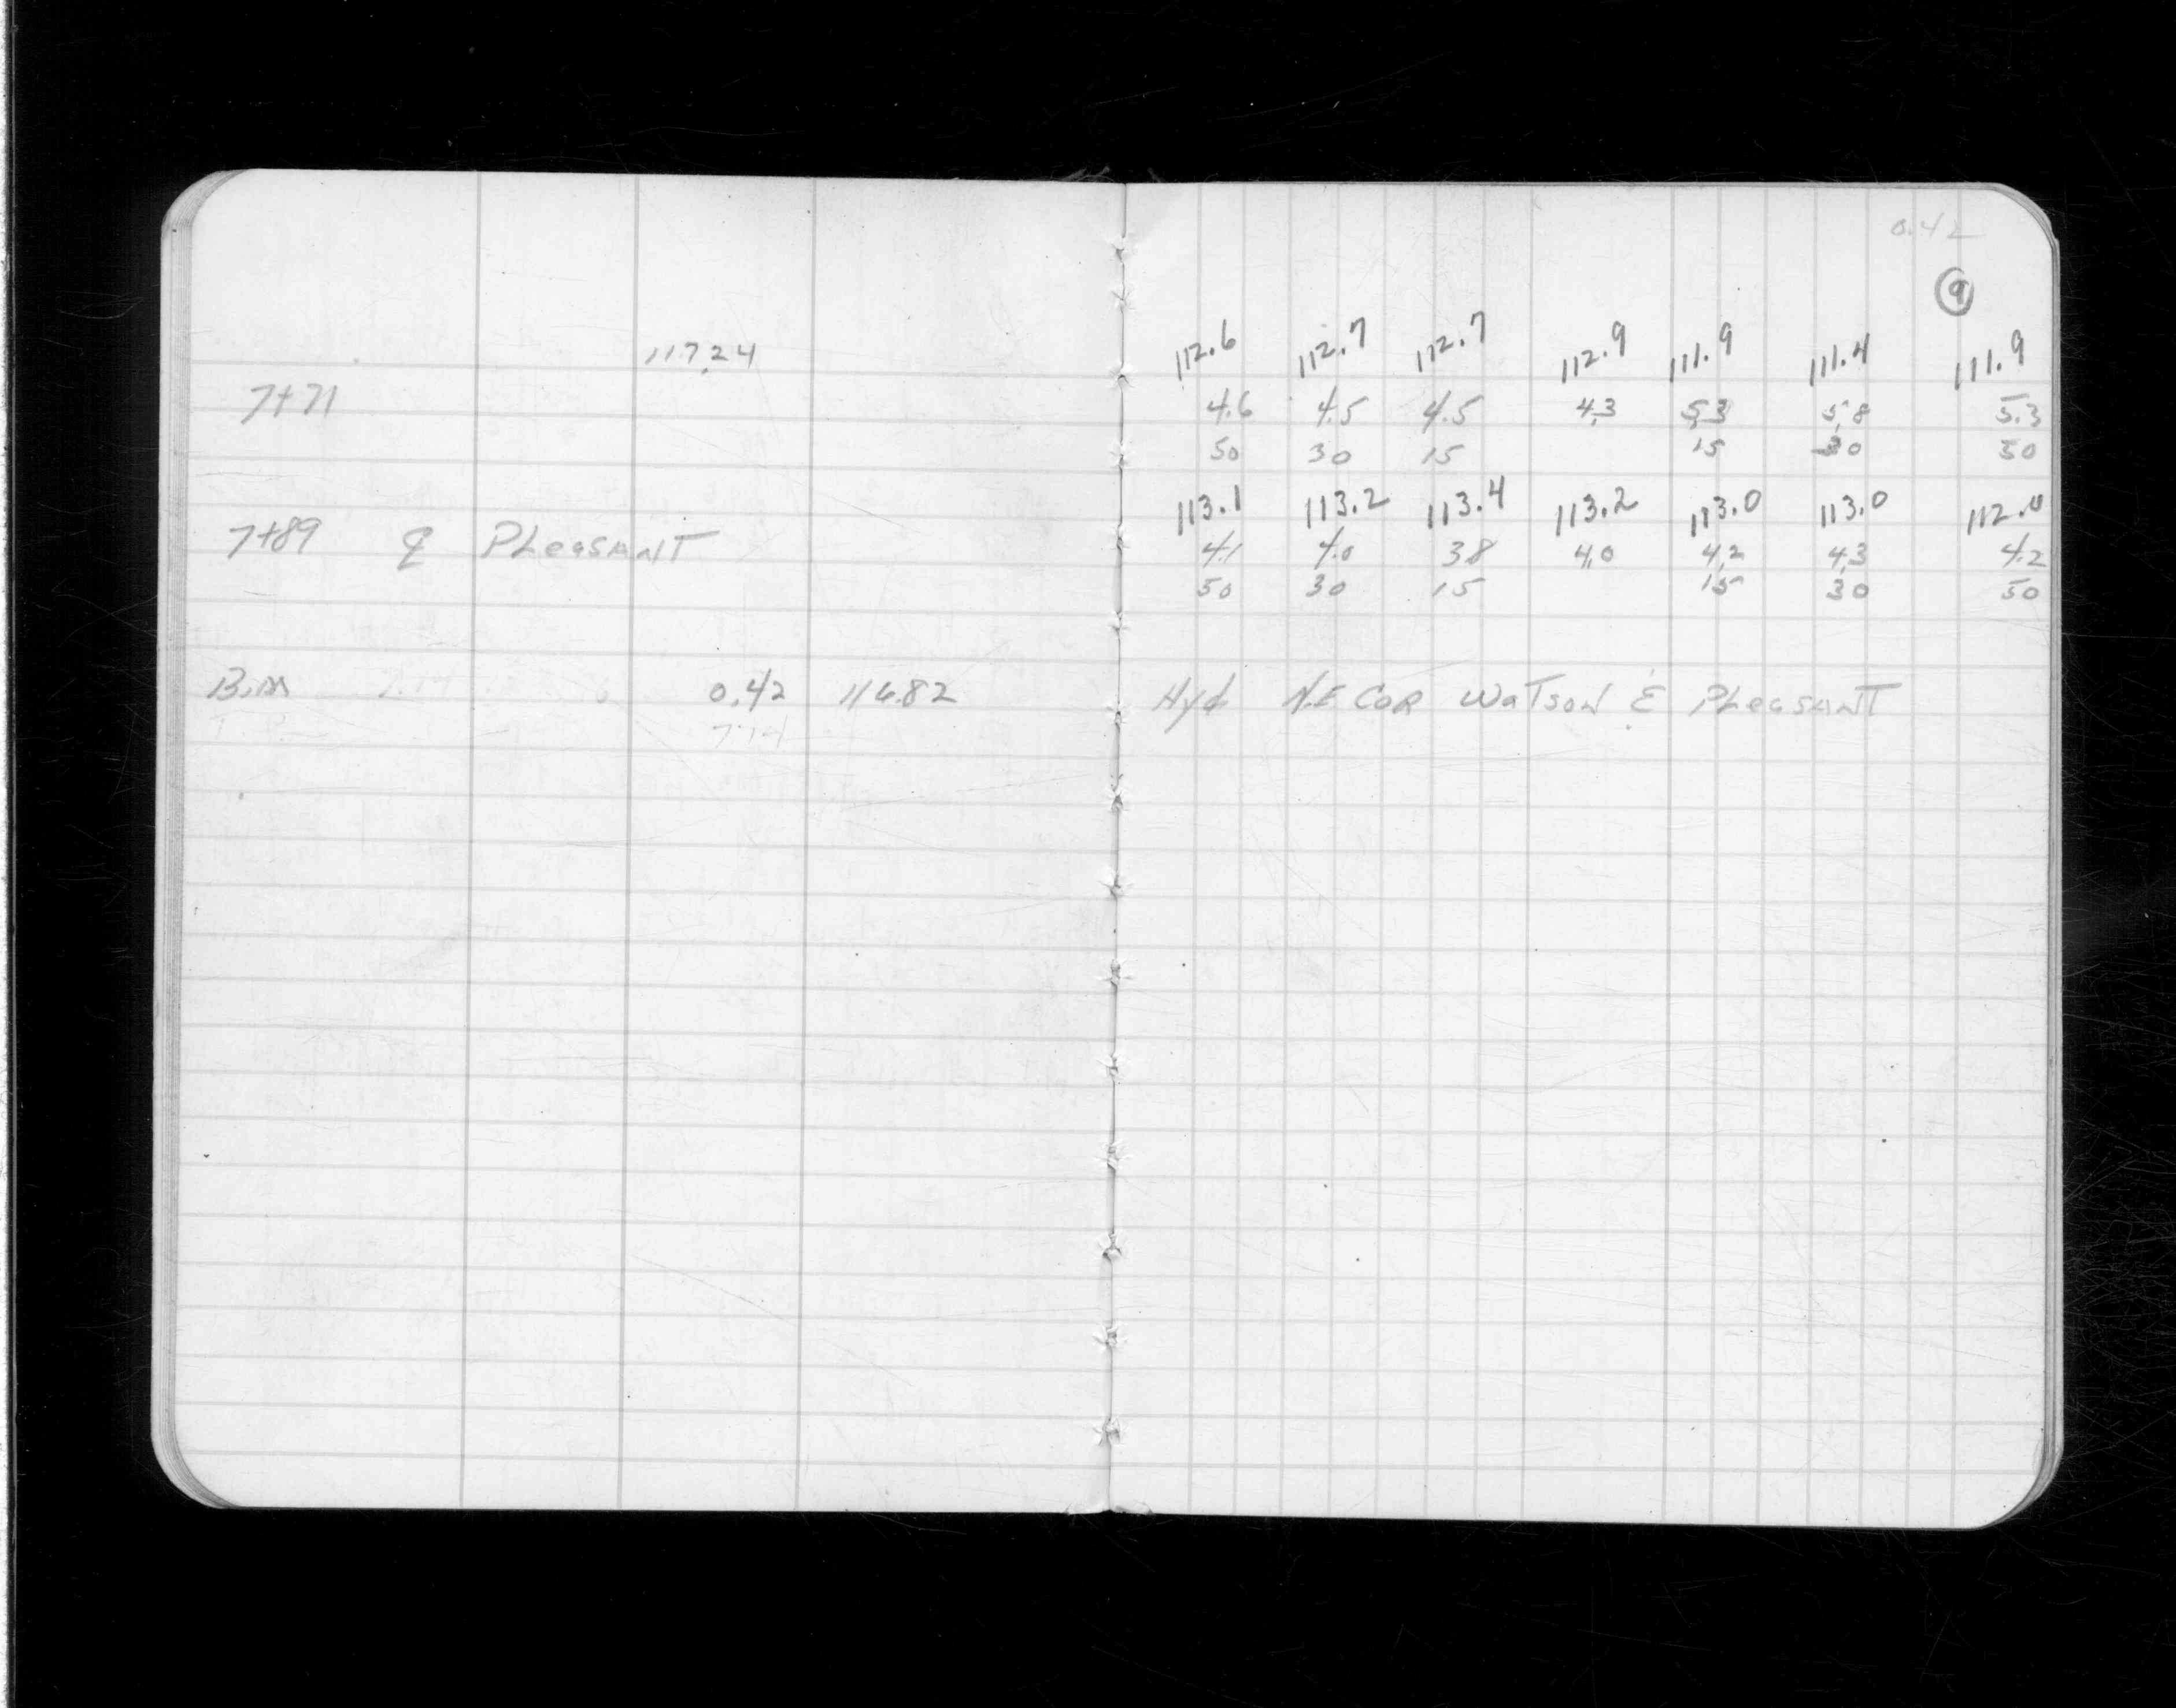 0.42
9
117.24
112.6 112.7 112.7 112.9 111.9 111.4 111.9
7+71 4.6 4.5 4.5 4.3 5.3 5.8 5.3
50 30 15 15 30 50
113.1 113.2 113.4 113.2 113.0 113.0 112.0
7+89 ȼ Pheasant 4.1 4.0 3.8 4.0 4.2 4.3 4.2
50 30 15 15 30 50
B.M 0.42 116.82 Hyd N.E COR Watson & Pheasant